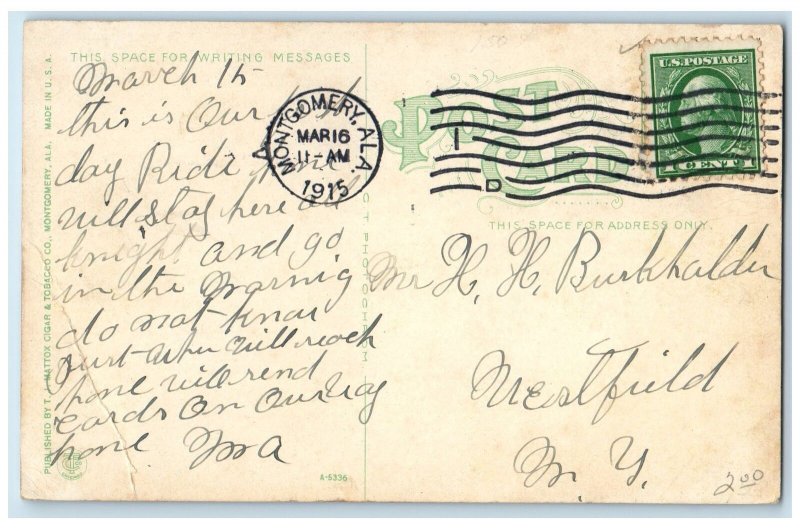 THIS SPACE FOR WRITING MESSAGES
March 15
this is Our
day Ride
will stay here all
knight and go
in the Warnig
do not know
Just when will reach
home will send
Cards On Our Way
home Ma
MONTGOMERY, ALA.
MAR 16
11-AM
1915
POST
CARD
U.S. POSTAGE
1 CENT 1
THIS SPACE FOR ADDRESS ONLY.
Mr H. H. Burkholder
Westfield
N. Y.
2.00
1
D
A-5336
PUBLISHED BY T. J. MATTOX CIGAR & TOBACCO CO., MONTGOMERY, ALA. MADE IN U.S.A.